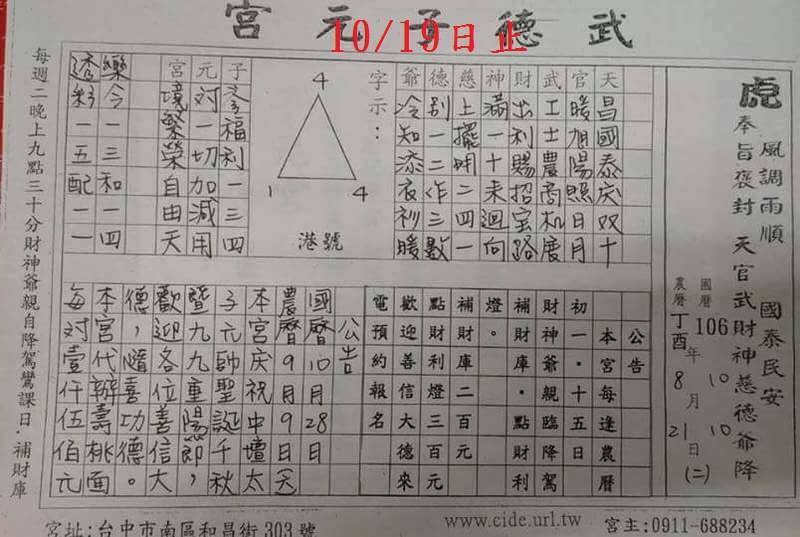 武德子元宮
10/19日止
風調雨順 國泰民安
虎
奉旨褒封 天官武財神慈德爺降
國曆 106年10月10日(二)
農曆 丁酉年8月21日
天昌國泰庆双十
官暖旭陽照日月
武工士農商机度
財出利賜招宝路
神滿一十來迴向
慈上擺明二四一
德別一二作三数
爺冷知添衣衫暖
字示：
4
1
4
港號
子孝福利一三四
元对一切加減用
宮境繁榮自由天
樂今一三和一四
透彩一五配一一
公告
本宮每逢農曆
初一。十五日
財神爺。親臨降駕
補財庫。點財利
燈。
補財庫二百元
點財利燈三百元
歡迎善信大德來
電預約報名
公告
國曆10月28日
農曆9月9日
本宮庆祝中壇太
子元帥聖誕千秋
暨九九重陽節，
歡迎各位善信大
德，隨喜功德。
本宮代辦壽桃面。
每对壹仟伍佰元
每週二晚上九點三十分財神爺親自降駕鸞課日．補財庫
宮址:台中市南區和昌街303號
www.cide.url.tw
宮主:0911-688234